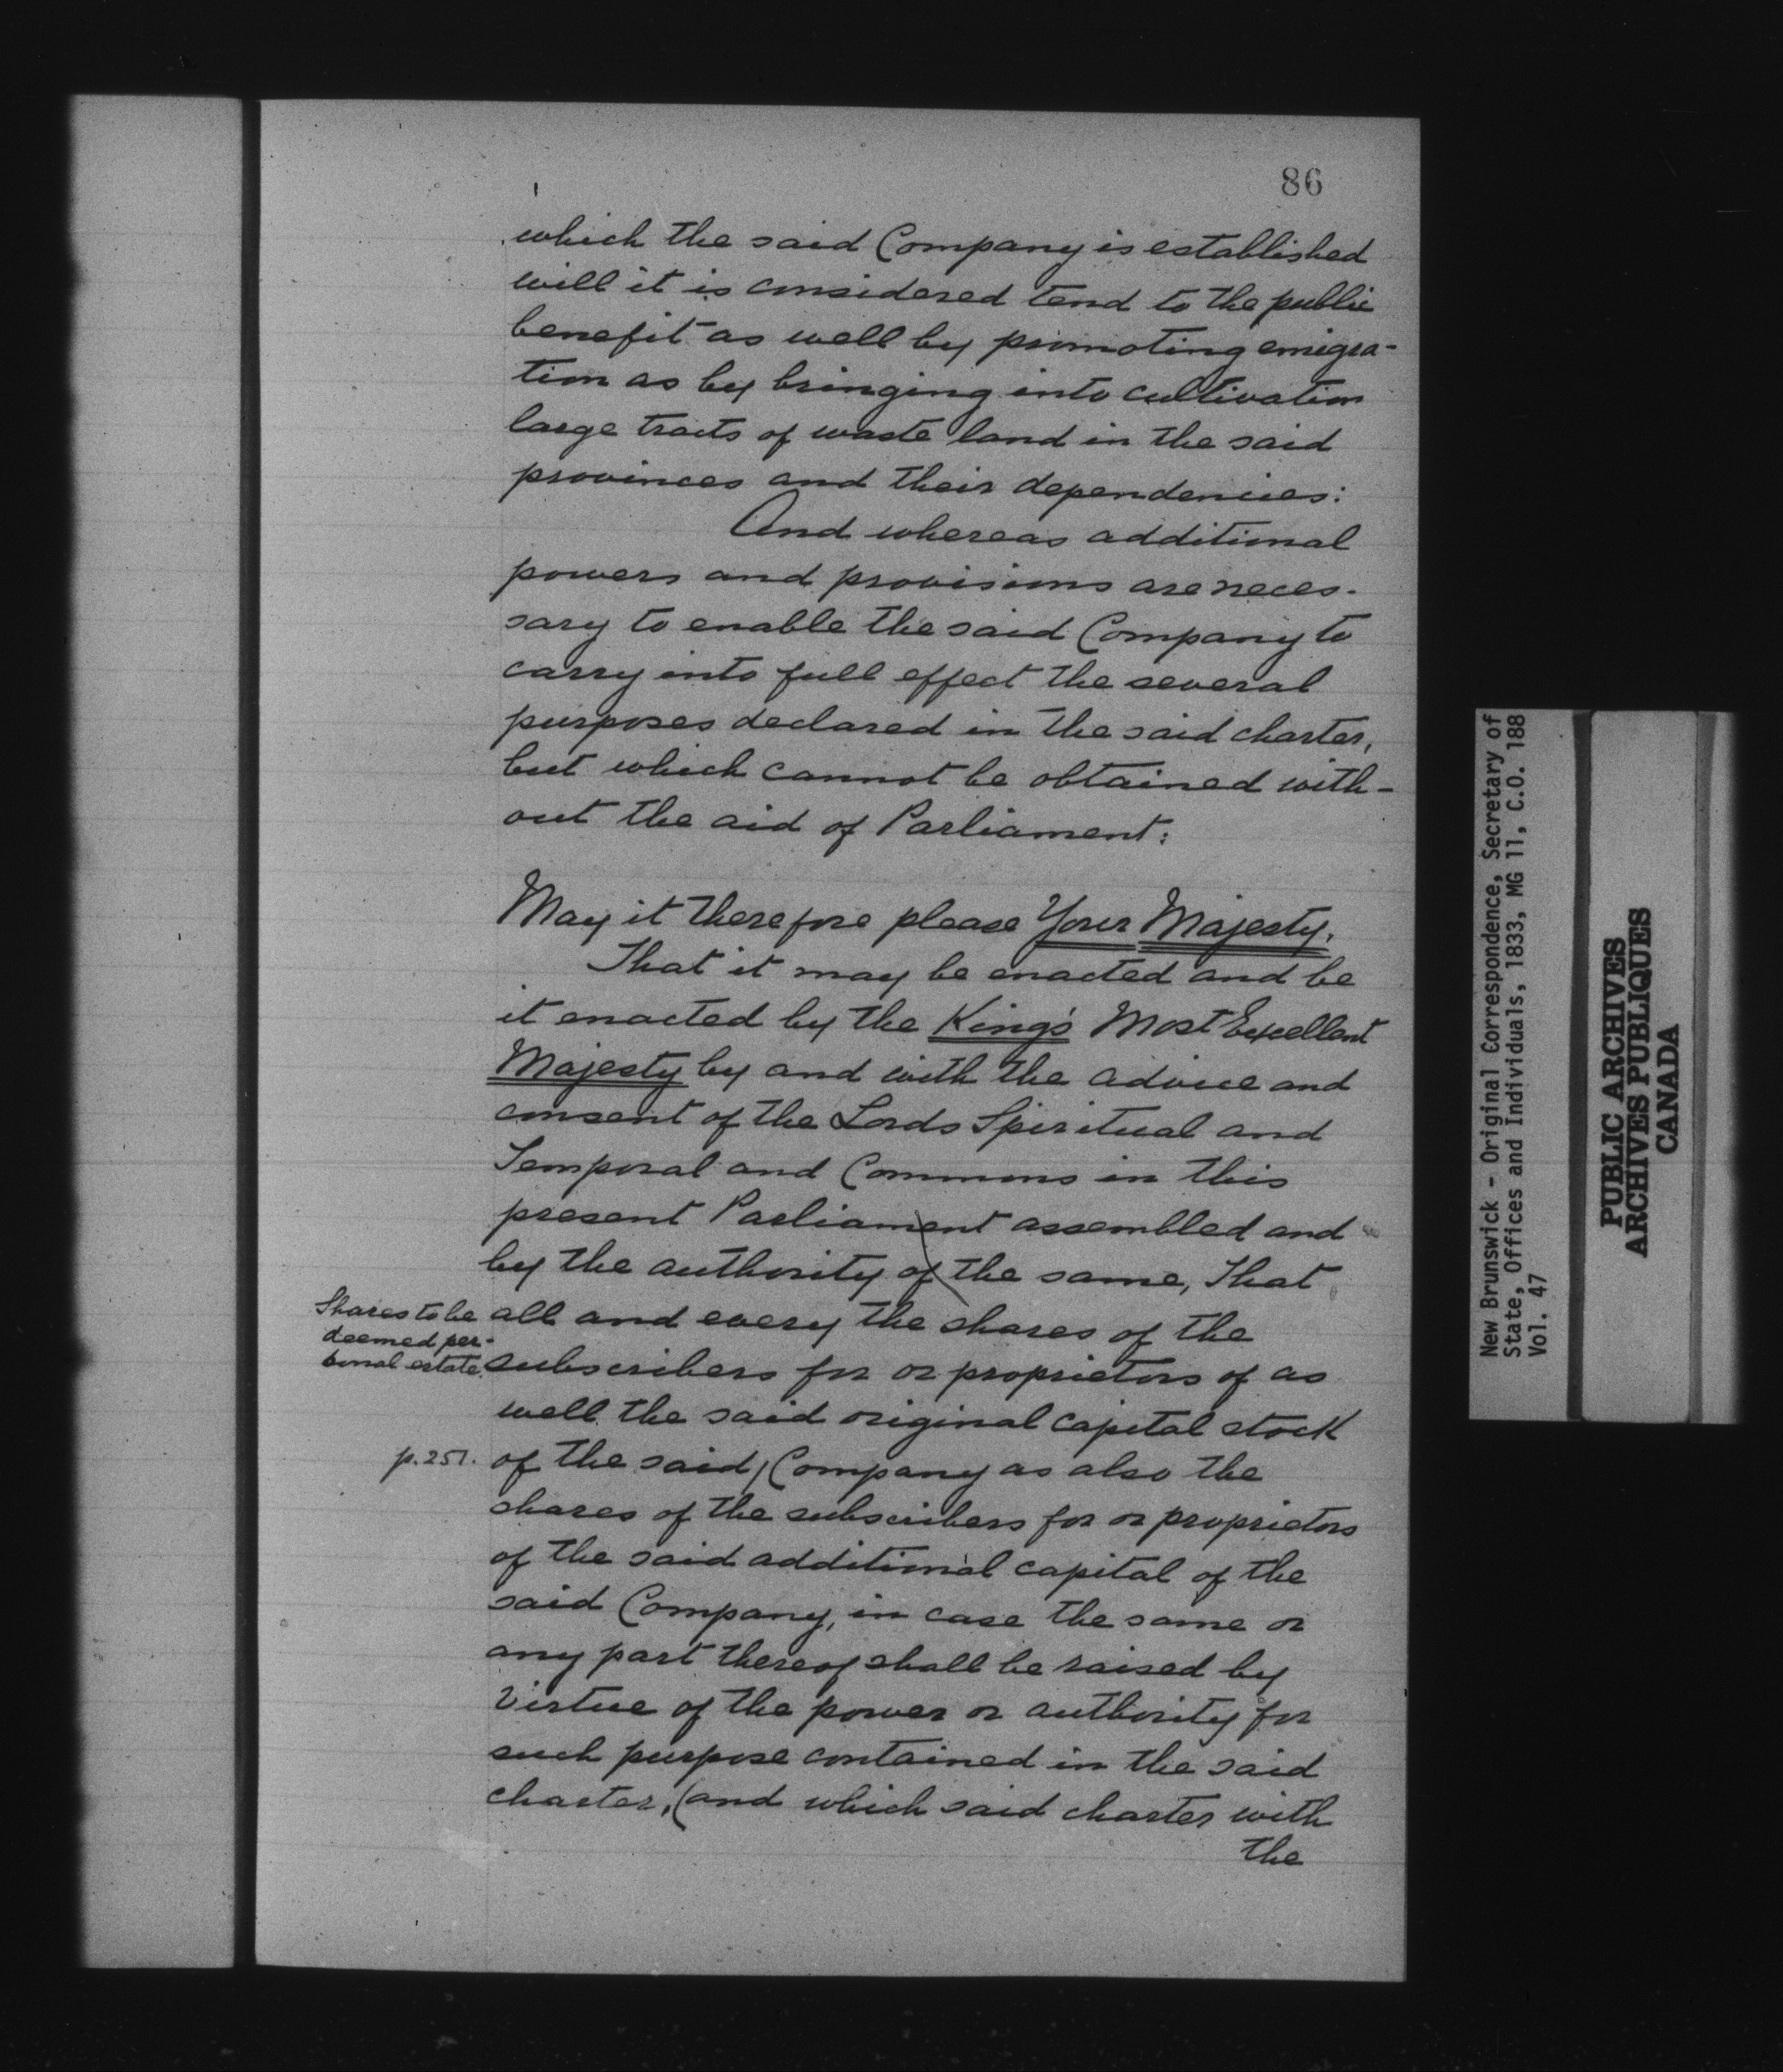 86
which the said Company is established
will it is considered tend to the public
benefit as well by promoting emigra-
tion as by bringing into cultivation
large tracts of waste land in the said
provinces and their dependencies:
And whereas additional
powers and provisions are neces-
sary to enable the said Company to
carry into full effect the several
purposes declared in the said charter,
but which cannot be obtained with-
out the aid of Parliament:
May it therefore please Your Majesty,
That it may be enacted and be
it enacted by the King's Most Excellent
Majesty by and with the advice and
consent of the Lords Spiritual and
Temporal and Commons in this
present Parliament assembled and
by the authority of the same, That
Shares to be
deemed per-
sonal estate.
all and every the shares of the
subscribers for or proprietors of as
well the said original capital stock
p. 251.
of the said/Company as also the
shares of the subscribers for or proprietors
of the said additional capital of the
said Company, in case the same or
any part thereof shall be raised by
virtue of the power or authority for
such purpose contained in the said
charter, (and which said charter with
the
New Brunswick - Original Correspondence, Secretary of
State, Offices and Individuals, 1833, MG 11, C.O. 188
Vol. 47
PUBLIC ARCHIVES
ARCHIVES PUBLIQUES
CANADA